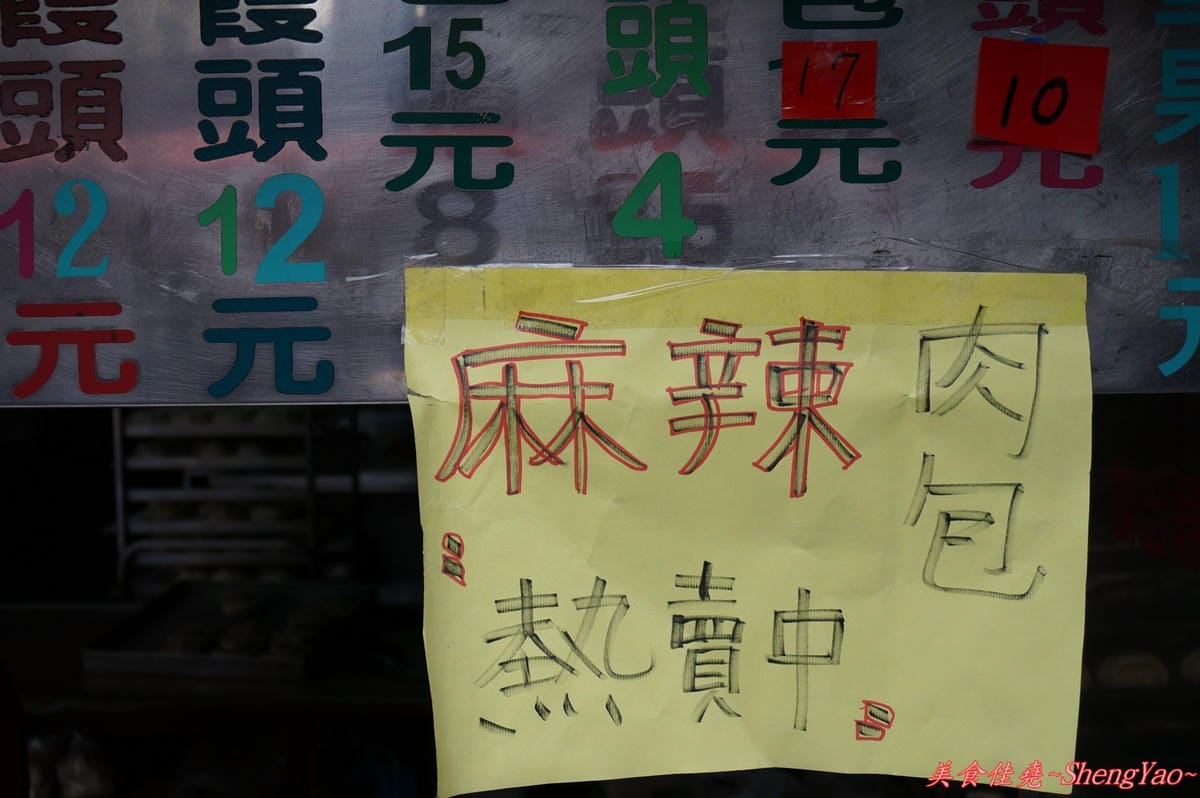 饅頭12元
饅頭12元
15元
頭4
包17元
頭10元
麻辣
肉包
熱賣中
美食佳堯~ShengYao~